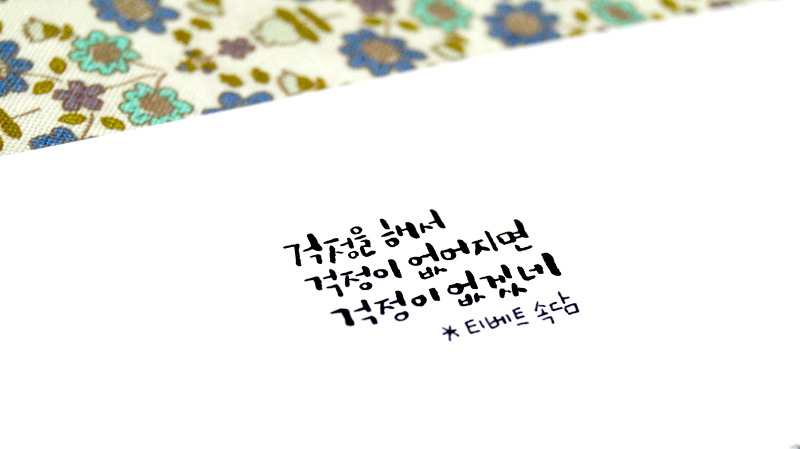 걱정을 해서
걱정이 없어지면
걱정이 없겠네
* 티베트 속담